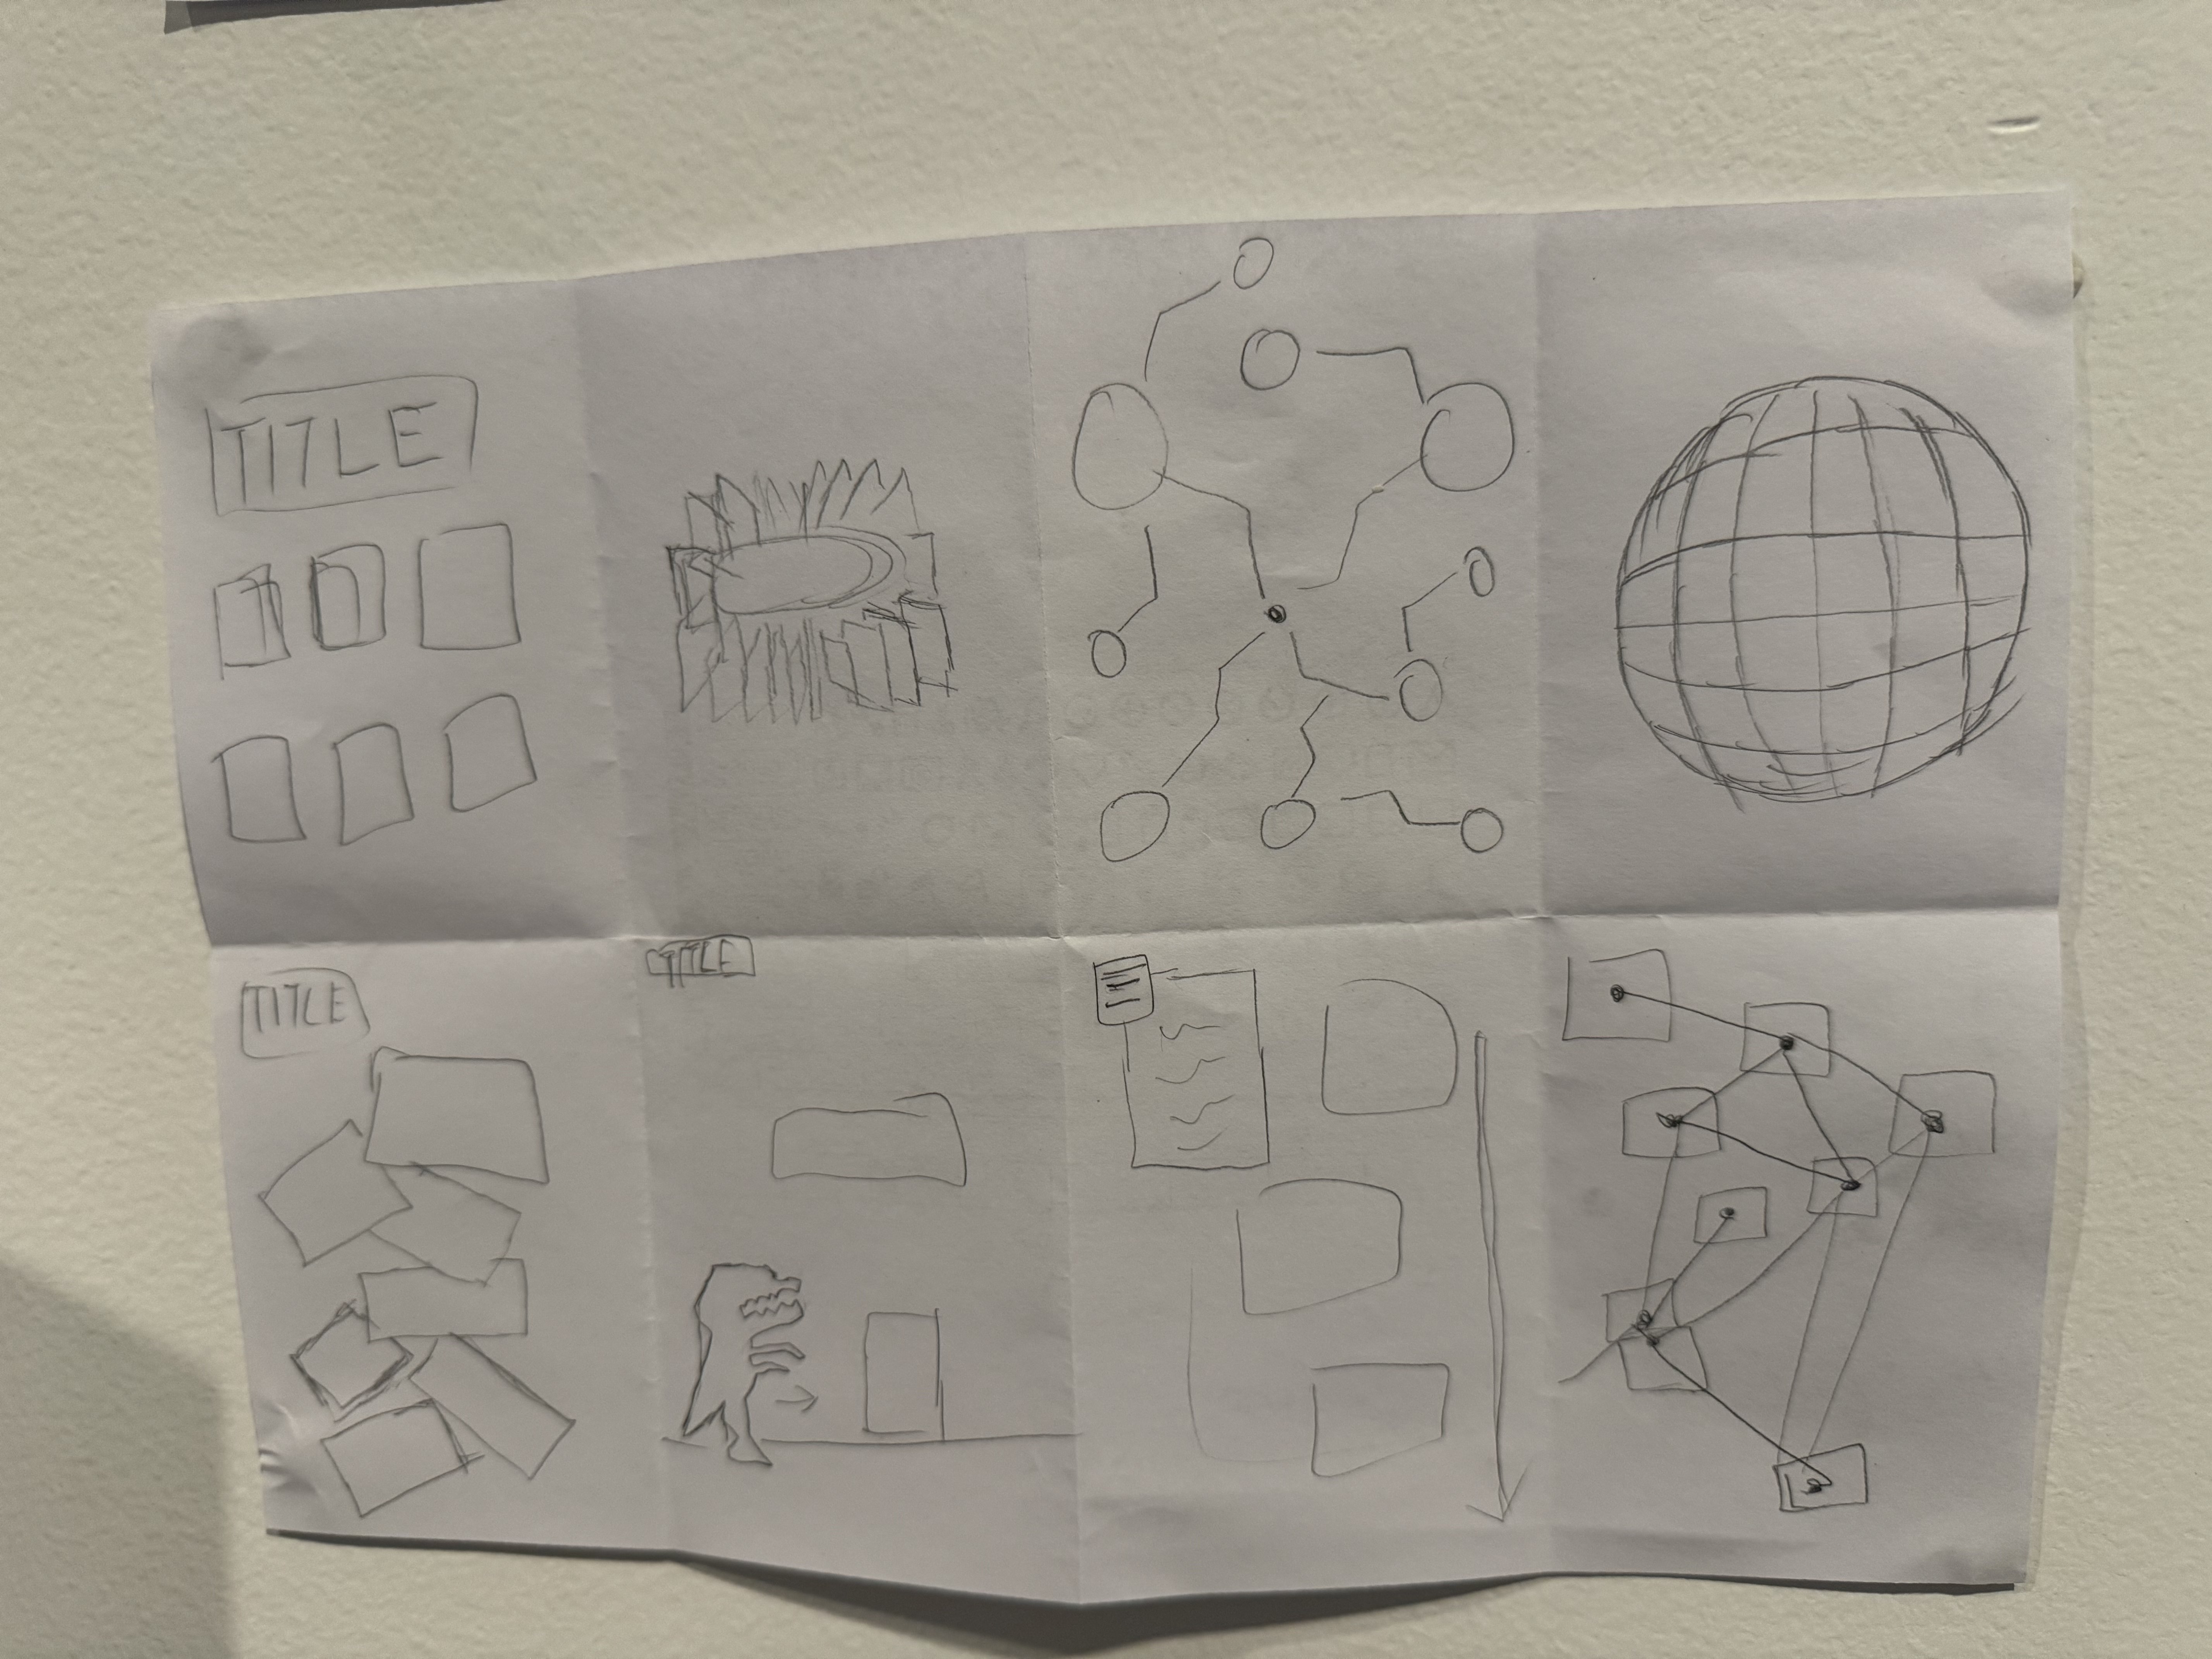 TITLE
TITLE
TITLE